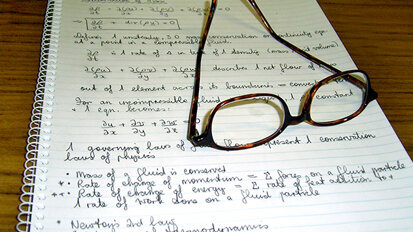 ∂ρ/∂t + ∂(ρu)/∂x + ∂(ρv)/∂y + ∂(ρw)/∂z = 0
∂ρ/∂t + div(ρu) = 0
unsteady, 3D mass conservation or continuity eqn
at a point in a compressible fluid
∂ρ/∂t is rate of Δ in t of density (mass per unit volume)
∂(ρu)/∂x + ∂(ρv)/∂y + ∂(ρw)/∂z describes net flow of
out of element across its boundaries
For an incompressible fluid constant
eqn becomes:
∂u/∂x + ∂v/∂y + ∂w/∂z
governing laws of present conservation
laws of physics
• Mass of a fluid is conserved
• Rate of change of momentum = Σ forces on a fluid particle
• Rate of change of energy = Σ rate of heat addition to +
rate of work done on a fluid particle
• Newton's 2nd law
thermodynamics